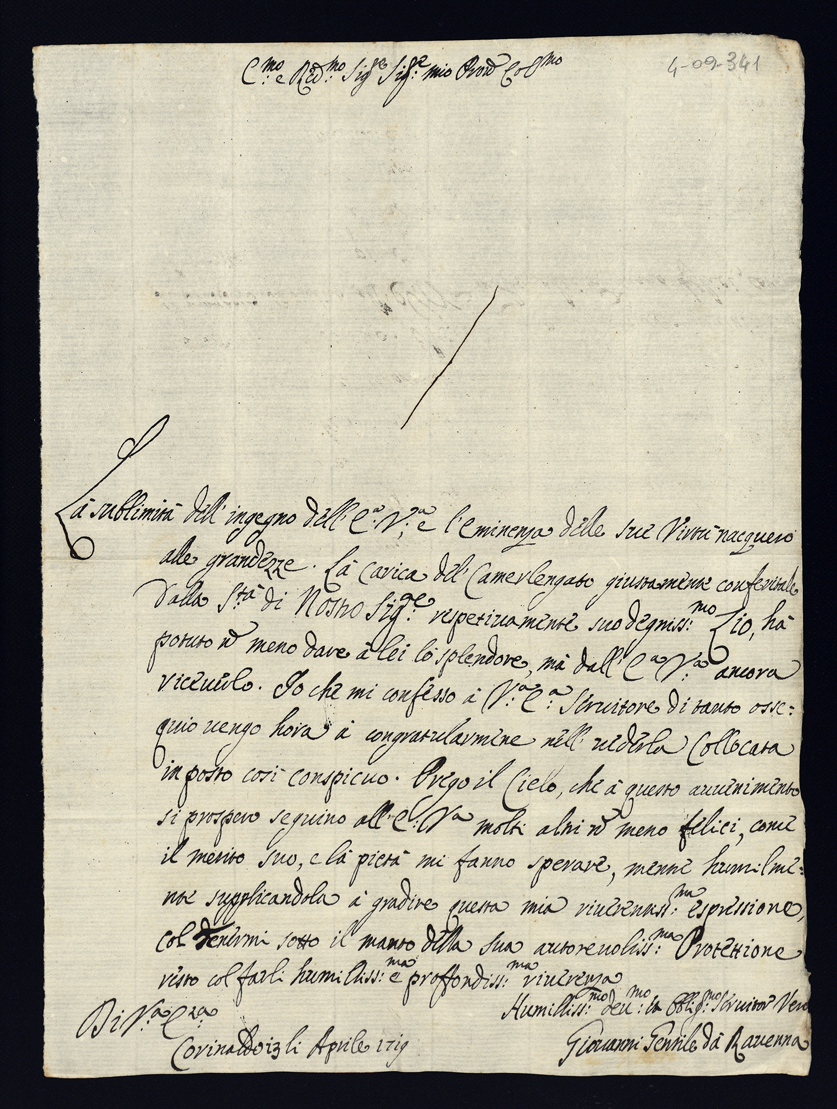 4-09-341
E.mo e Rev.mo Sig.re Sig.re mio Pron Col.mo
La sublimità dell'ingegno dell'E.a V.a, e l'eminenza delle sue Virtù nacquero
alle grandezze. La carica del Camerlengato giustamente conferitale
dalla S.tà di Nostro Sig.re respetivamente suo degniss:mo Zio, hà
potuto nō meno dare à lei lo splendore, mà dall'E.a V.a ancora
riceverlo. Io che mi confesso à V.a E.a Servitore di tanto osse:
quio vengo hora à congratularmine nell'vederla Collocata
in posto così conspicuo. Prego il Cielo, che à questo avvenimento
si prospero seguino all'E.a V.a molti altri nō meno felici, come
il merito suo, e la pietà mi fanno sperare, mentre humilme:
nte supplicandola à gradire questa mia riverentiss:ma espressione,
col tenermi sotto il manto della sua autorevoliss:ma Protettione
resto col farli humiliss:ma e proffondiss:ma riverenza
Di V.a E.za
Humiliss:mo dev:mo et Obblig:mo Servitor Vero
Corinaldo 13 li Aprile 1719
Giovanni Gentile da Ravenna